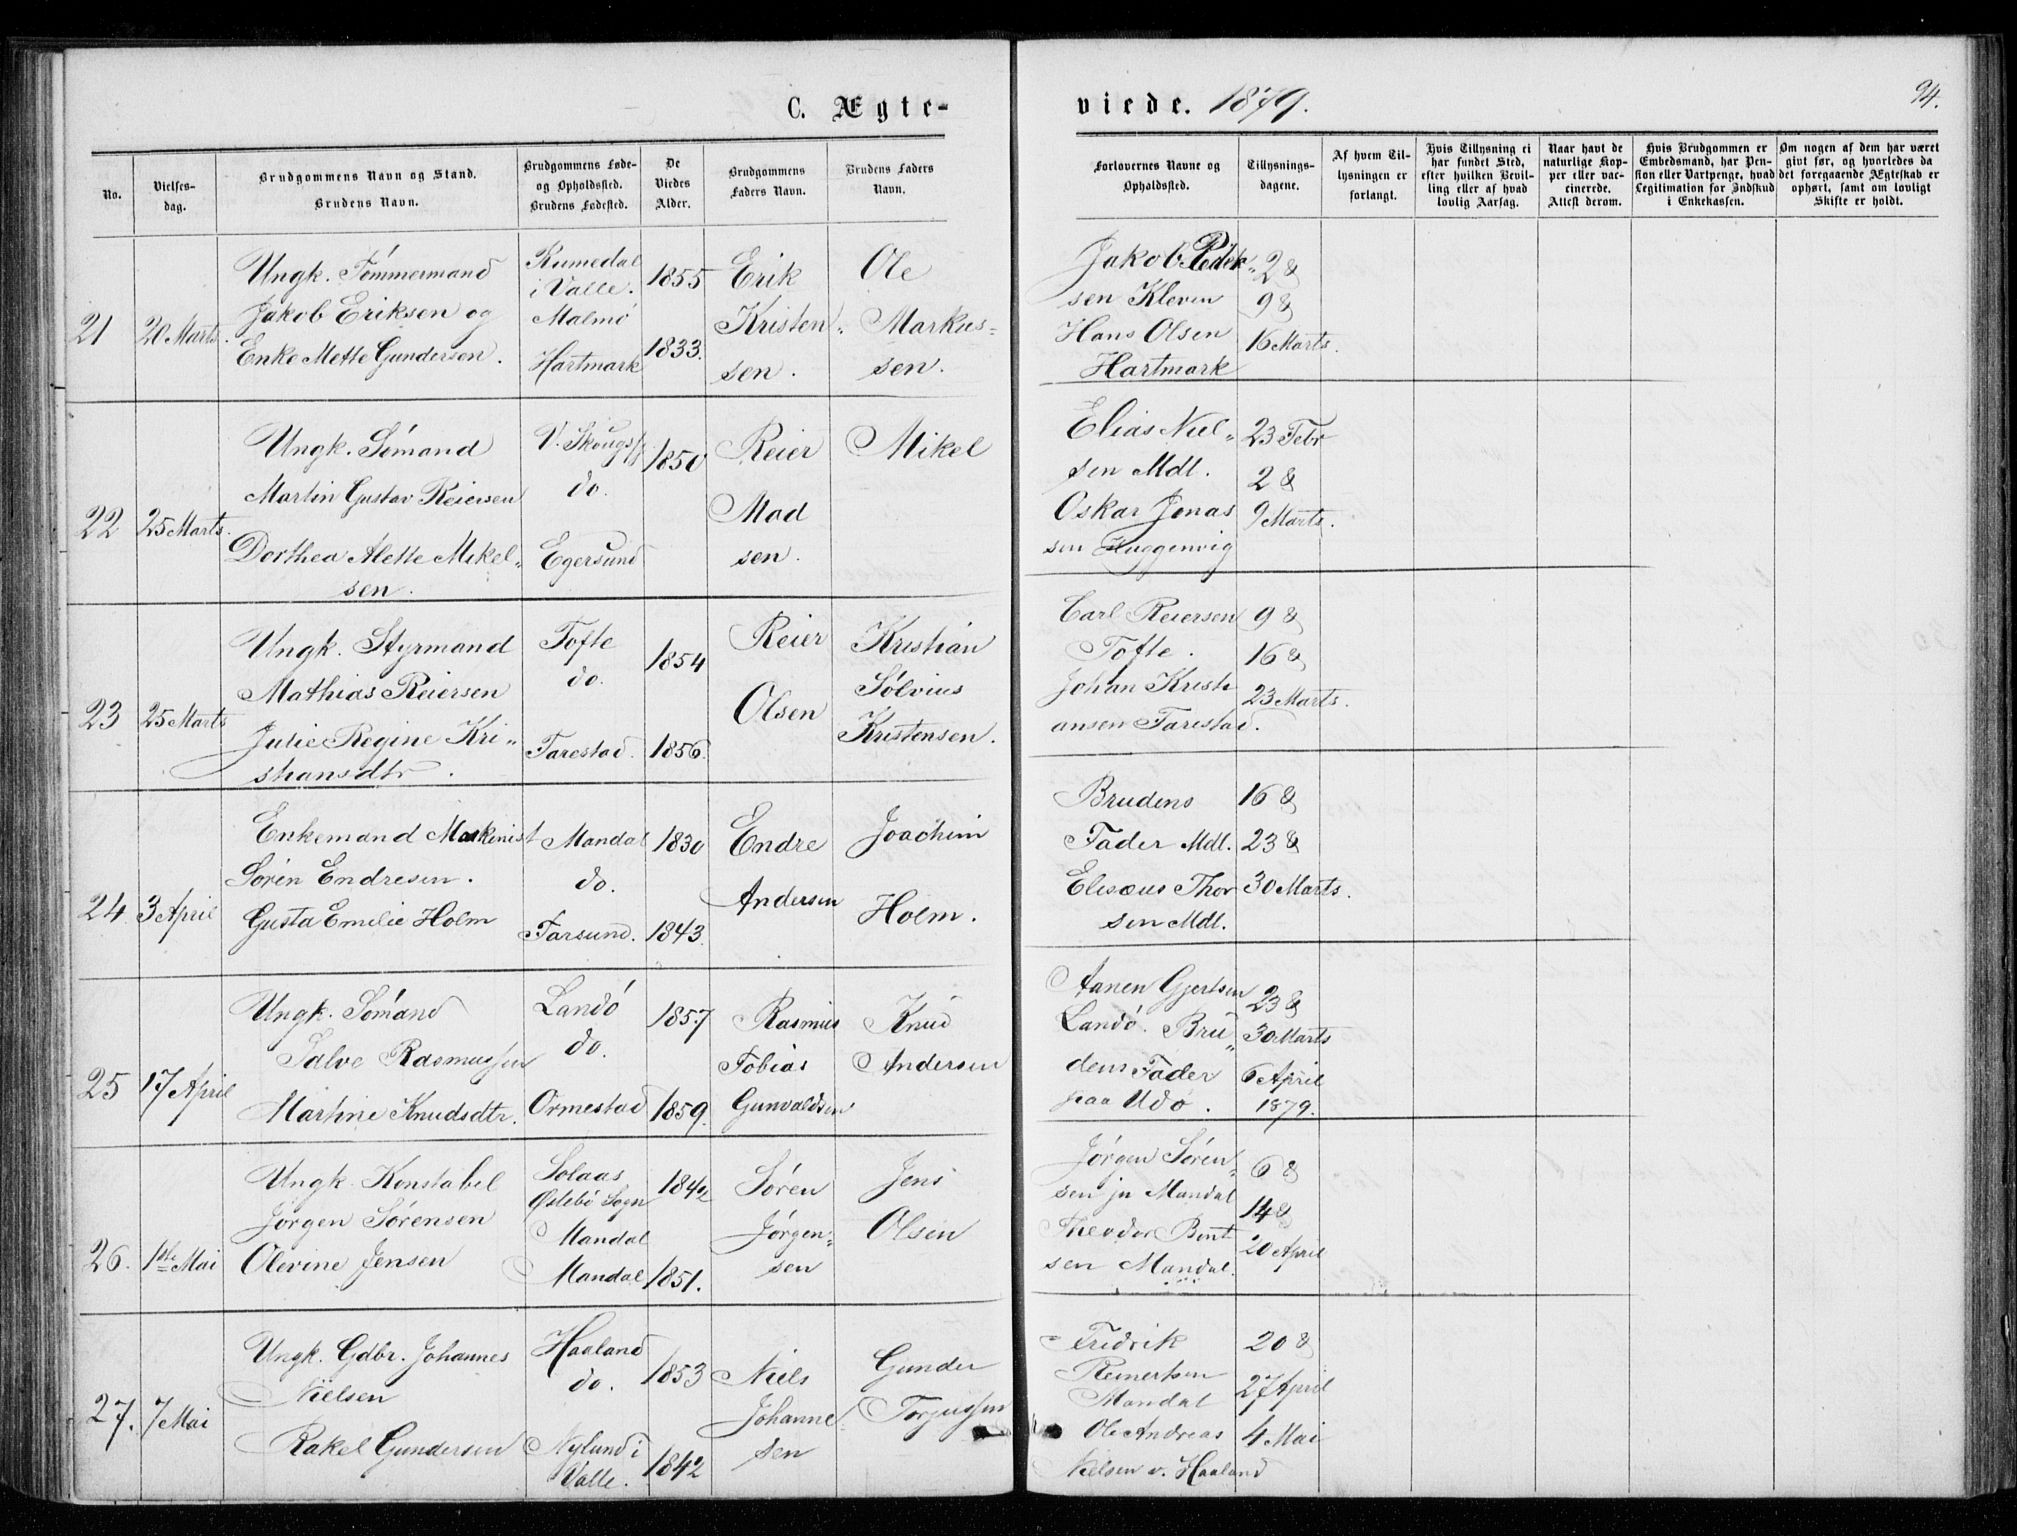 C. Ægte-
viede. 1879.
94.
No.
Vielses-
dag.
Brudgommens Navn og Stand.
Brudens Navn.
Brudgommens Føde-
og Opholdssted.
Brudens Fødested.
De
Viedes
Alder.
Brudgommens
Faders Navn.
Brudens Faders
Navn.
Forlovernes Navne og
Opholdssted.
Tillysnings-
dagene.
Af hvem Til-
lysningen er
forlangt.
Hvis Tillysning ei
har fundet Sted,
efter hvilken Bevil-
ling eller af hvad
lovlig Aarsag.
Naar havt de
naturlige Kop-
per eller vac-
cinerede.
Attest derom.
Hvis Brudgommen er
Embedsmand, har Pen-
sion eller Vartpenge, hvad
Legitimation for Indskud
i Enkekassen.
Om nogen af dem har været
givt før, og hvorledes da
det foregaaende Ægteskab er
ophørt, samt om lovligt
Skifte er holdt.
21
20 Marts.
Ungk. Tømmermand
Jakob Eriksen og
Enke Mette Gundersen.
Rumedal
i Valle.
Malmø
Hartmark
1855
1833.
Erik
Kristen-
sen.
Ole
Markus-
sen.
Jakob Peder-
sen Kleven
Hans Olsen
Hartmark
2 &
9 &
16 Marts.
22
25 Marts.
Ungk. Sømand
Martin Gustav Reiersen
Dorthea Alette Mikel-
sen.
V. Skougsf
do.
Egersund
1850
Reier
Mad
sen.
Mikel
Elias Niel-
sen Mdl.
Oskar Jonas
sen Huggenvig
23 Febr
2 &
9 Marts.
23
25 Marts
Ungk. Styrmand
Mathias Reiersen
Julie Regine Kri-
stiansdtr.
Tofte
do.
Tarestad.
1854
1856.
Reier
Olsen
Kristian
Sølvius
Kristensen.
Carl Reiersen
Tofte.
Johan Kristi
ansen Tarestad.
9 &
16 &
23 Marts.
24
3 April
Enkemand Maskinist
Sørin Endresen.
Gusta Emilie Holm
Mandal
do.
Farsund.
1830
1843.
Endre
Andersen
Joachim
Holm.
Brudens
Fader Mdl.
Elisæus Thor
sen Mdl.
16 &
23 &
30 Marts.
25
17 April
Ungk. Sømand
Salve Rasmussen
Martine Knudsdtr.
Landø
do.
Ormestad
1857
1859.
Rasmus
Tobias
Gunvaldsen
Knud
Andersen
Aanen Gjertsen
Landø. Bru-
dens Fader
paa Udø.
23 &
30 Marts
6 April
1879.
26.
1ste Mai
Ungk. Konstabel
Jørgen Sørensen
Olevine Jensen
Solaas
Øslebø Sogn
Mandal
Mandal
1842
1851.
Søren
Jørgen-
sen
Jens
Olsen
Jørgen Søren-
sen ju Mandal
Theodor Bent
sen Mandal.
6 &
14 &
20 April
27.
7 Mai
Ungk. Gdbr. Johannes
Nielsen
Rakel Gundersen
Haaland
do.
Nylund i
Valle.
1853
1842
Niels
Johanne
sen
Gunder
Torjussen
Fredrik
Reinertsen
Mandal
Ole Andreas
Nielsen v. Haaland
20 &
27 April
4 Mai